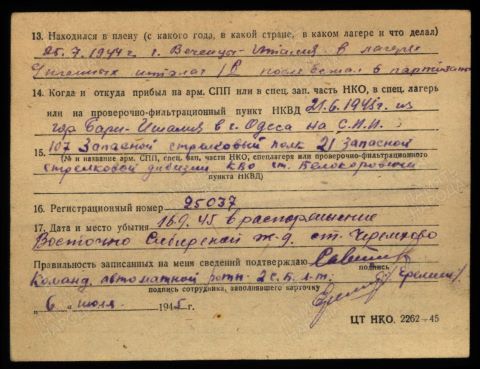 13. Находился в плену (с какого года, в какой стране, в каком лагере и что делал)
25.7.1944 г. г. Италия в лагере
в
14. Когда и откуда прибыл на арм. СПП или в спец. зап. часть НКО, в спец. лагерь
или на проверочно-фильтрационный пункт НКВД 21.6.1945 г. из
гор Бари-Италия в г. Одесса на С.П.П.
15. 107 Запасной стрелковый полк 21 запасной
(№ и название арм. СПП, спец. зап. части НКО, спецлагеря или проверочно-фильтрационного
стрелковой дивизии КВО ст. Белокоровичи
пункта НКВД)
16. Регистрационный номер 25037
17. Дата и место убытия 15.9.45 в распоряжение
Восточно Сибирской ж-д. ст. Черемхово
Правильность записанных на меня сведений подтверждаю
подпись
Команд. автоматной роты 2 с.б. л-т.
подпись сотрудника, заполнявшего карточку
„6“ июля 1945 г.
ЦТ НКО. 2262—45